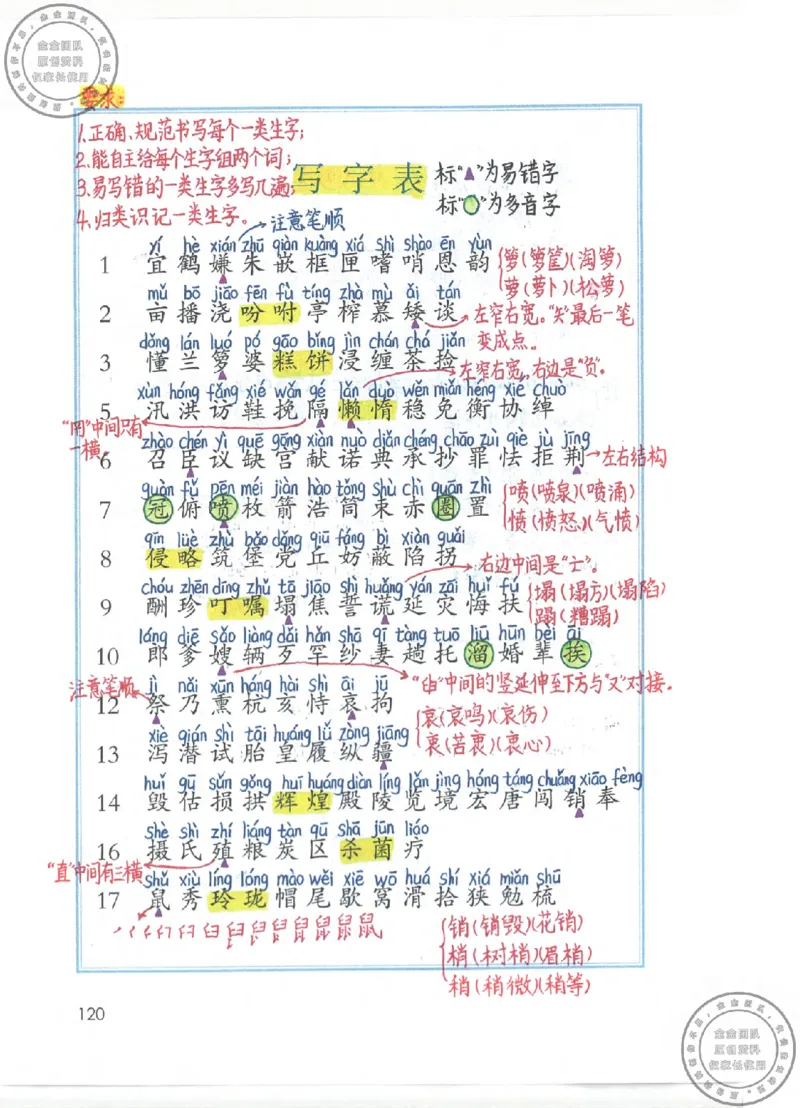 要求:
1.正确、规范书写每个一类生字;
2.能自主给每个生字组两个词;
3.易写错的一类生字多写几遍;
4.归类识记一类生字。
写字表
标"▲"为易错字
标"○"为多音字
注意笔顺
yí hè xián zhū qiàn kuàng xiá shì shào ēn yùn
1 宜鹤嫌朱嵌框匣嗜哨恩韵
箩(箩筐)(淘箩)
萝(萝卜)(松萝)
mǔ bō jiāo fēn fù tíng zhà mù ǎi tán
2 亩播浇吩咐亭榨慕矮谈
左窄右宽。"矢"最后一笔变成点。
dǒng lán luó pó gāo bǐng jìn chán chá jiǎn
3 懂兰箩婆糕饼浸缠茶捡
左窄右宽,右边是"负"。
xùn hóng fǎng xié wǎn gé lǎn duò wěn miǎn héng xié chuò
5 汛洪访鞋挽隔懒惰稳免衡协绰
"冂"中间只有一横。
zhào chén yì quē gōng xiàn nuò diǎn chéng chāo zuì qiè jù jīng
6 召臣议缺宫献诺典承抄罪怯拒荆
左右结构
guàn fǔ pēn méi jiàn hào tǒng shù chì quān zhì
7 冠俯喷枚箭浩筒束赤圈置
喷(喷泉)(喷涌)
愤(愤怒)(气愤)
qīn lüè zhù bǎo dǎng qiū fáng bì xiàn guǎi
8 侵略筑堡党丘妨蔽陷拐
右边中间是"亡"。
chóu zhēn dīng zhǔ tā jiāo shì huǎng yán zāi huǐ fú
9 酬珍叮嘱塌焦誓谎延灾悔扶
塌(塌方)(塌陷)
蹋(糟蹋)
láng diē sǎo liàng dǎi hǎn shā qī tàng tuō liū hūn bèi āi
10 郎爹嫂辆歹罕纱妻趟托溜婚辈挨
"臼"中间的竖延伸至下方与"又"对接。
注意笔顺
jì nǎi xūn háng hài shì āi jū
12 祭乃熏杭亥恃哀拘
哀(哀鸣)(哀伤)
衷(苦衷)(衷心)
xiè qián shì tāi huáng lǚ zòng jiāng
13 泻潜试胎皇履纵疆
huǐ gū sǔn gǒng huī huáng diàn líng lǎn jìng hóng táng chuǎng xiāo fèng
14 毁估损拱辉煌殿陵览境宏唐闯销奉
shè shì zhí liáng tàn qū shā jūn liáo
16 摄氏殖粮炭区杀菌疗
"直"中间有三横
shǔ xiù líng lóng mào wěi xiē wō huá shí xiá miǎn shū
17 鼠秀玲珑帽尾歇窝滑拾狭勉梳
销(销毁)(花销)
梢(树梢)(眉梢)
稍(稍微)(稍等)
120
金金团队
原创资料
仅家长使用
金金团队
原创资料
仅家长使用